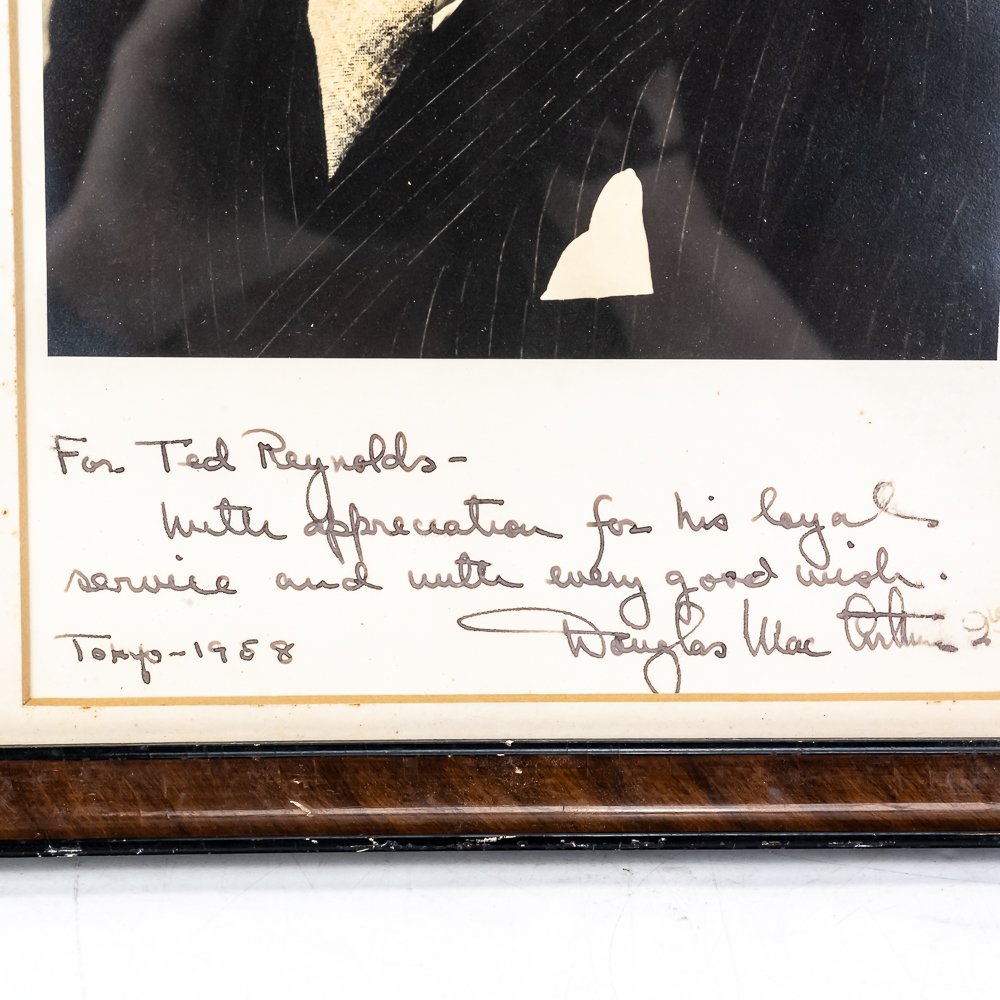 For Ted Reynolds-
With appreciation for his loyal
service and with every good wish.
Douglas MacArthur 2nd
Tokyo-1958